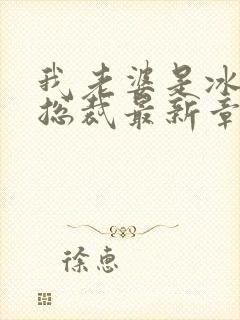 我老婆是冰
总裁最新章
徐惠